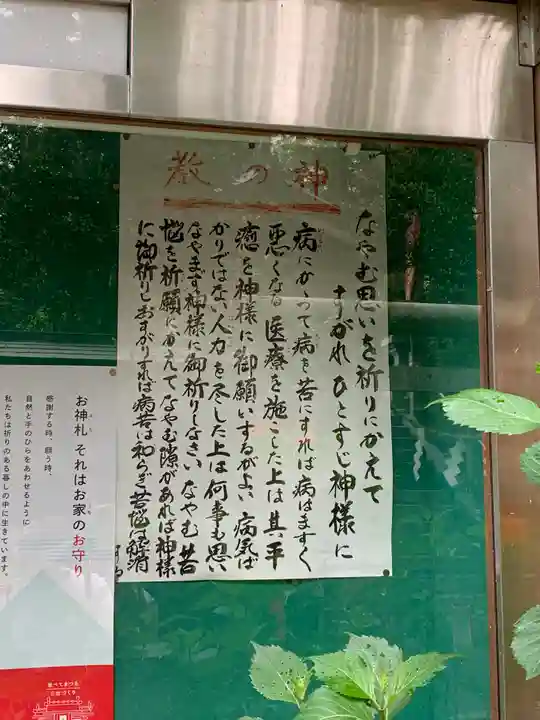 神の教
なやむ思いを祈りにかえて
すがれ ひとすじ神様に
病にかゝって病を苦にすれば病はますく
悪くなる 医療を施こした上は其平
癒を神様に御願いするがよい 病気ば
かりではない人力を尽した上は何事も思い
なやまず神様に御祈りしなさい なやむ苦
悩を祈願にかえてなやむ隙があれば神様
に御祈りしおすがりすれば病苦は和らぎ苦悩は解消
する
お神札 それはお家のお守り
感謝する時、願う時、
自然と手のひらをあわせるように
私たちは祈りのある暮しの中に生きています。